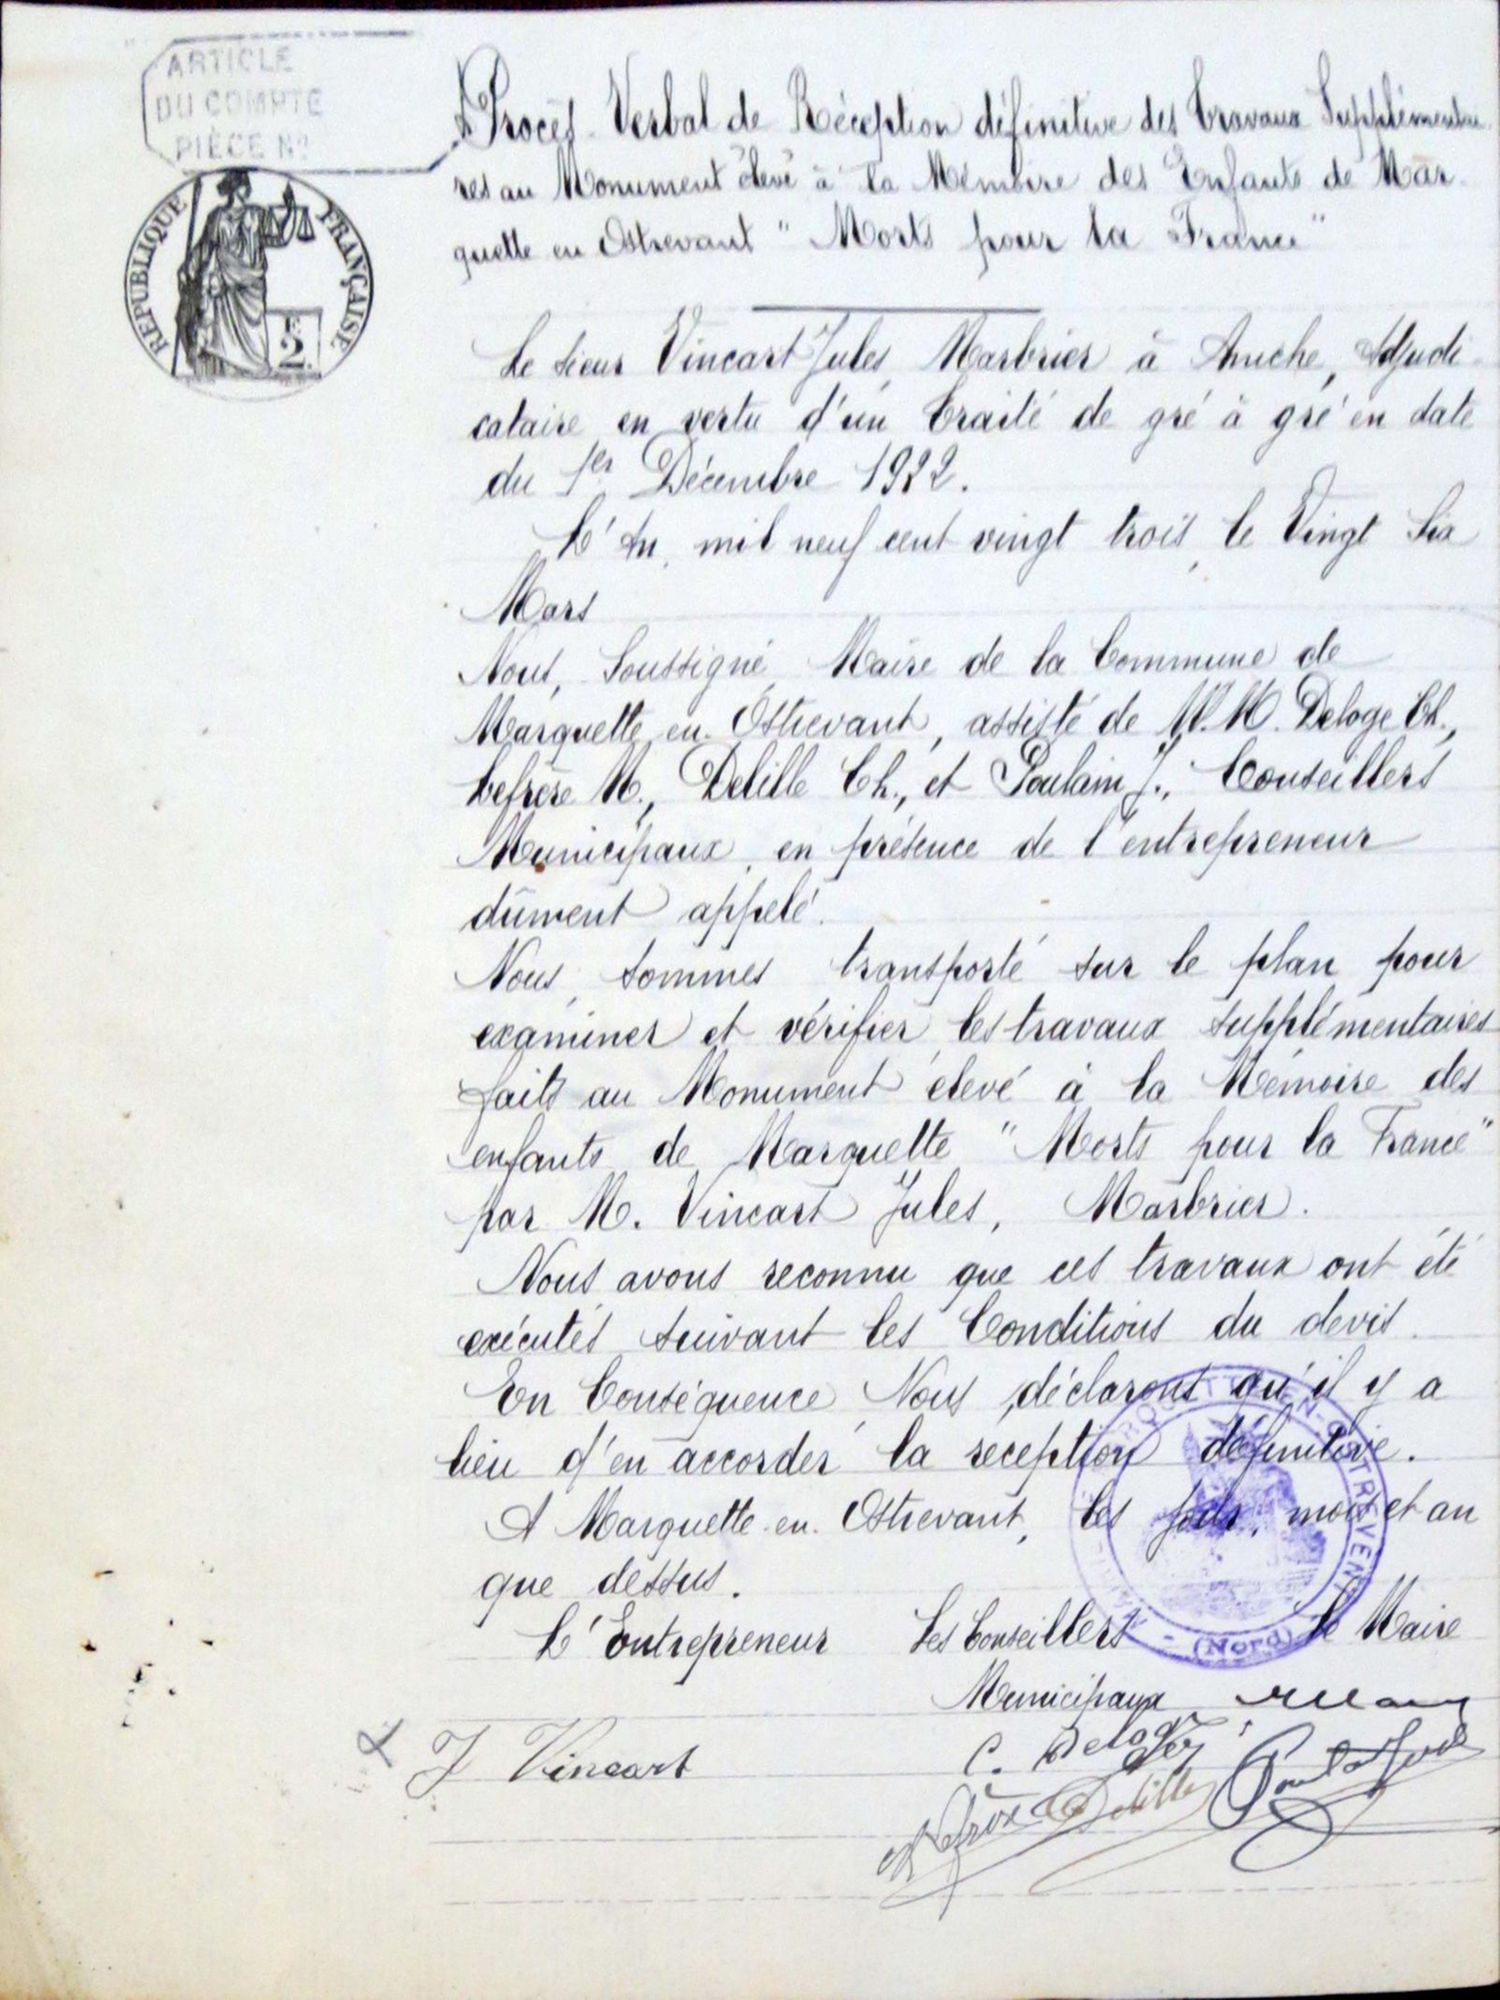 ARTICLE
DU COMPTE
PIÈCE No
RÉPUBLIQUE FRANÇAISE
2
Procès-Verbal de Réception définitive des travaux Supplémentai
res au Monument élevé à la Mémoire des Enfants de Mar-
quette en Ostrevant "Morts pour la France"
Le sieur Vincart Jules, Marbrier à Aniche, Adjudi-
cataire en vertu d'un traité de gré à gré en date
du 1er Décembre 1922.
L'An, mil neuf cent vingt trois, le Vingt Six
Mars
Nous, Soussigné, Maire de la Commune de
Marquette en Ostrevant, assisté de M.M. Deloge Ch.,
Lefrère M., Delille Ch., et Poulain J., Conseillers
Municipaux, en présence de l'entrepreneur
dûment appelé.
Nous, sommes transporté sur le plan pour
examiner et vérifier les travaux supplémentaires
faits au Monument élevé à la Mémoire des
enfants de Marquette "Morts pour la France"
par M. Vincart Jules, Marbrier.
Nous avons reconnu que ces travaux ont été
exécutés suivant les Conditions du devis.
En Conséquence Nous déclarons qu'il y a
lieu d'en accorder la réception définitive.
A Marquette-en-Ostrevant, les jour, mois et an
que dessus.
L'Entrepreneur Les Conseillers Le Maire
Municipaux
(Nord)
J Vincart
C. Deloge
Delille